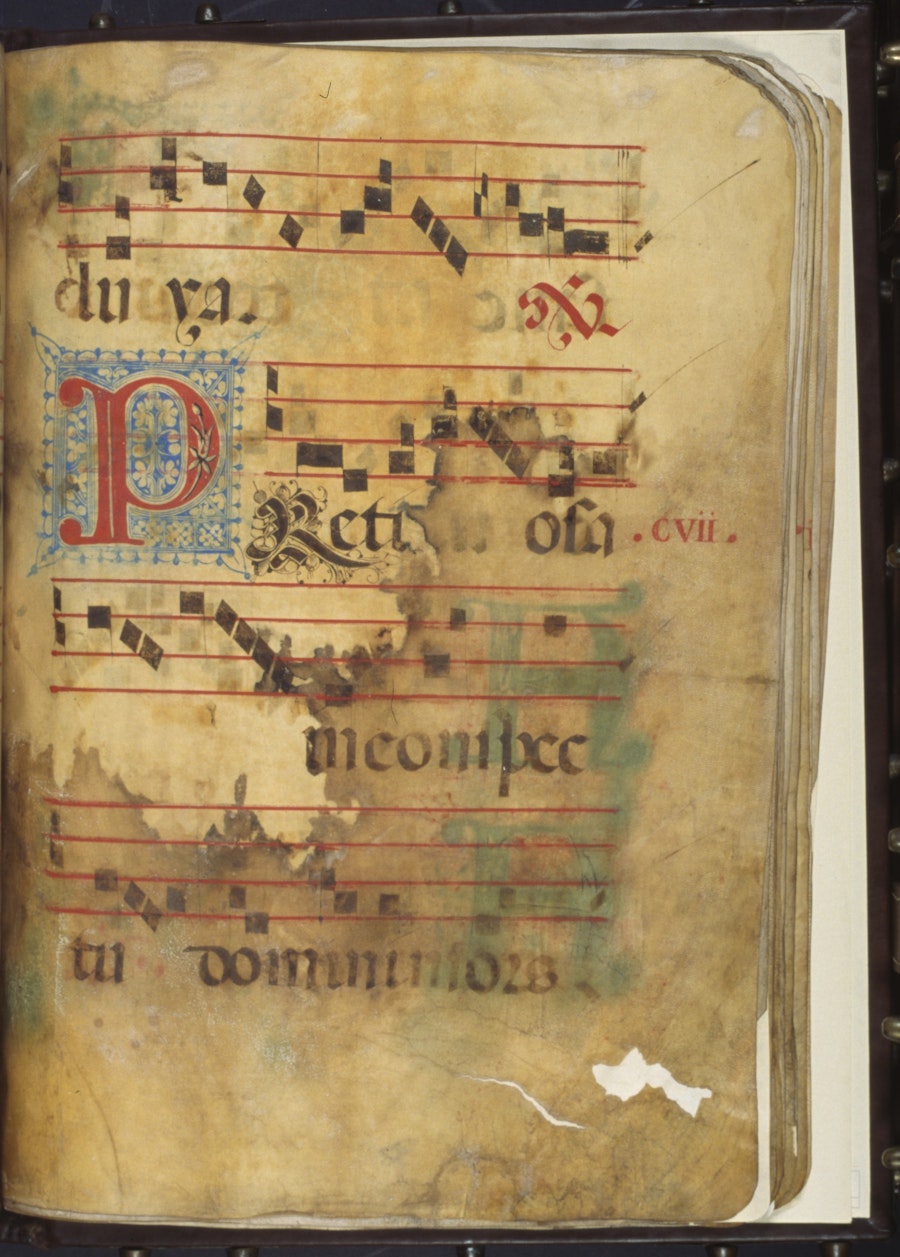 elu ya. ℣
PReti osa .cvii.
in conspec
tu domini mors